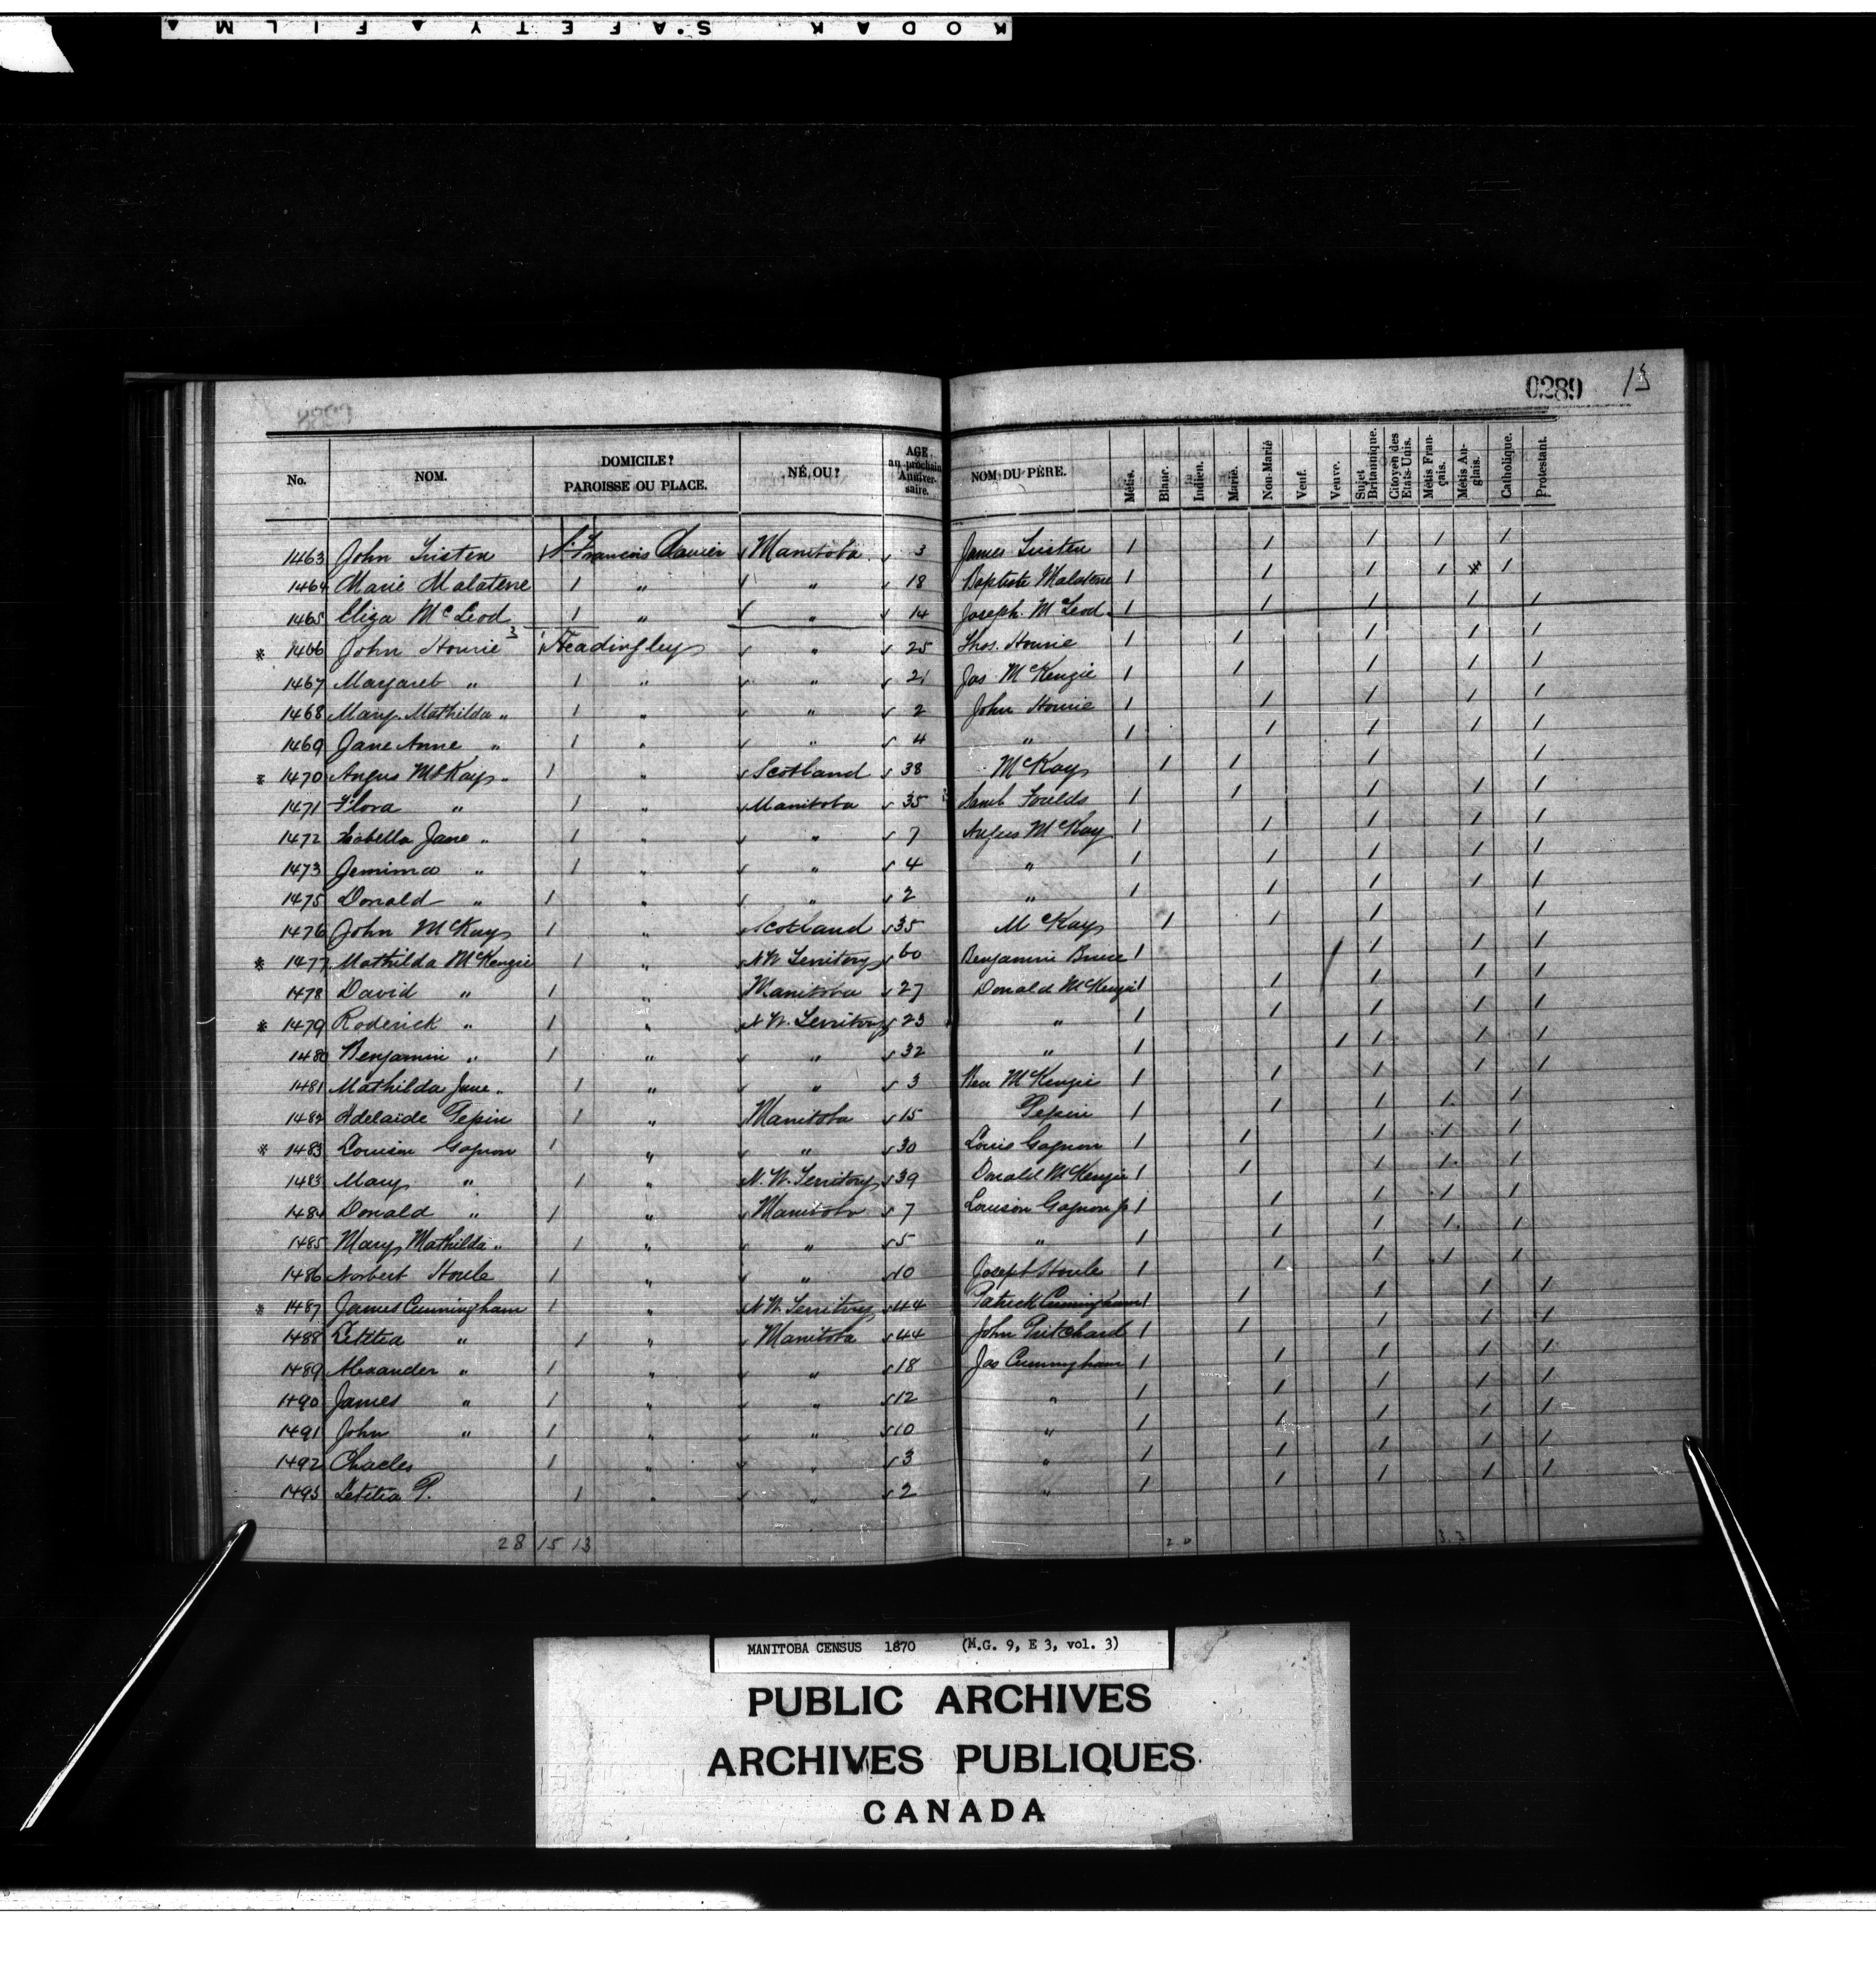 KODAK SAFETY FILM
0289 13
No. NOM. DOMICILE? PAROISSE OU PLACE. NÉ, OU? AGE au prochain Anniversaire. NOM DU PÈRE. Métis. Blanc. Indien. Marié. Non-Marié Veuf. Veuve. Sujet Britannique. Citoyen des Etats-Unis. Métis Français. Métis Anglais. Catholique. Protestant.
1463 John St. Francois Xavier Manitoba 3 James 1 1 1 1 1
1464 Marie Malaterre 1 " " 18 Baptiste Malaterre 1 1 1 1 1
1465 Eliza McLeod 1 " " 14 Joseph McLeod 1 1 1 1 1
* 1466 John Hourie 3 1 Headingley " 25 Thos. Hourie 1 1 1 1 1
1467 Margaret " 1 " " 21 Jas. McKenzie 1 1 1 1 1
1468 Mary Mathilda " 1 " " 2 John Hourie 1 1 1 1 1
1469 Jane Anne " 1 " " 4 " 1 1 1 1 1
* 1470 Angus McKay 1 " Scotland 38 McKay 1 1 1 1
1471 Flora " 1 " Manitoba 35 Saml Foulds 1 1 1 1 1
1472 Isabella Jane " 1 " " 7 Angus McKay 1 1 1 1 1
1473 Jemima " 1 " " 4 " 1 1 1 1 1
1475 Donald " 1 " " 2 " 1 1 1 1 1
1476 John McKay 1 " Scotland 35 McKay 1 1 1 1
* 1477 Mathilda McKenzie 1 " N.W. Territory 60 Benjamin Bruce 1 1 1 1 1
1478 David " 1 " Manitoba 27 Donald McKenzie 1 1 1 1 1
* 1479 Roderick " 1 " N.W. Territory 23 " 1 1 1 1 1
1480 Benjamin " 1 " " 32 " 1 1 1 1 1
1481 Mathilda Jane " 1 " " 3 Ben McKenzie 1 1 1 1 1
1482 Adelaïde Pepin 1 " Manitoba 15 Pepin 1 1 1 1 1
* 1483 Louison Gagnon 1 " " 30 Louis Gagnon 1 1 1 1 1
1483 Mary " 1 " N.W. Territory 39 Donald McKenzie 1 1 1 1 1
1484 Donald " 1 " Manitoba 7 Louison Gagnon Jr 1 1 1 1 1
1485 Mary Mathilda " 1 " " 5 " 1 1 1 1 1
1486 Norbert Houle 1 " " 10 Joseph Houle 1 1 1 1 1
* 1487 James Cunningham 1 " N.W. Territory 44 Patrick Cunningham 1 1 1 1 1
1488 Letitia " 1 " Manitoba 44 John Pritchard 1 1 1 1 1
1489 Alexander " 1 " " 18 Jas Cunningham 1 1 1 1 1
1490 James " 1 " " 12 " 1 1 1 1 1
1491 John " 1 " " 10 " 1 1 1 1 1
1492 Chacles 1 " " 3 " 1 1 1 1 1
1493 Letitia P. 1 " " 2 " 1 1 1 1 1
28 15 13
MANITOBA CENSUS 1870 (M.G. 9, E 3, vol. 3)
PUBLIC ARCHIVES
ARCHIVES PUBLIQUES
CANADA